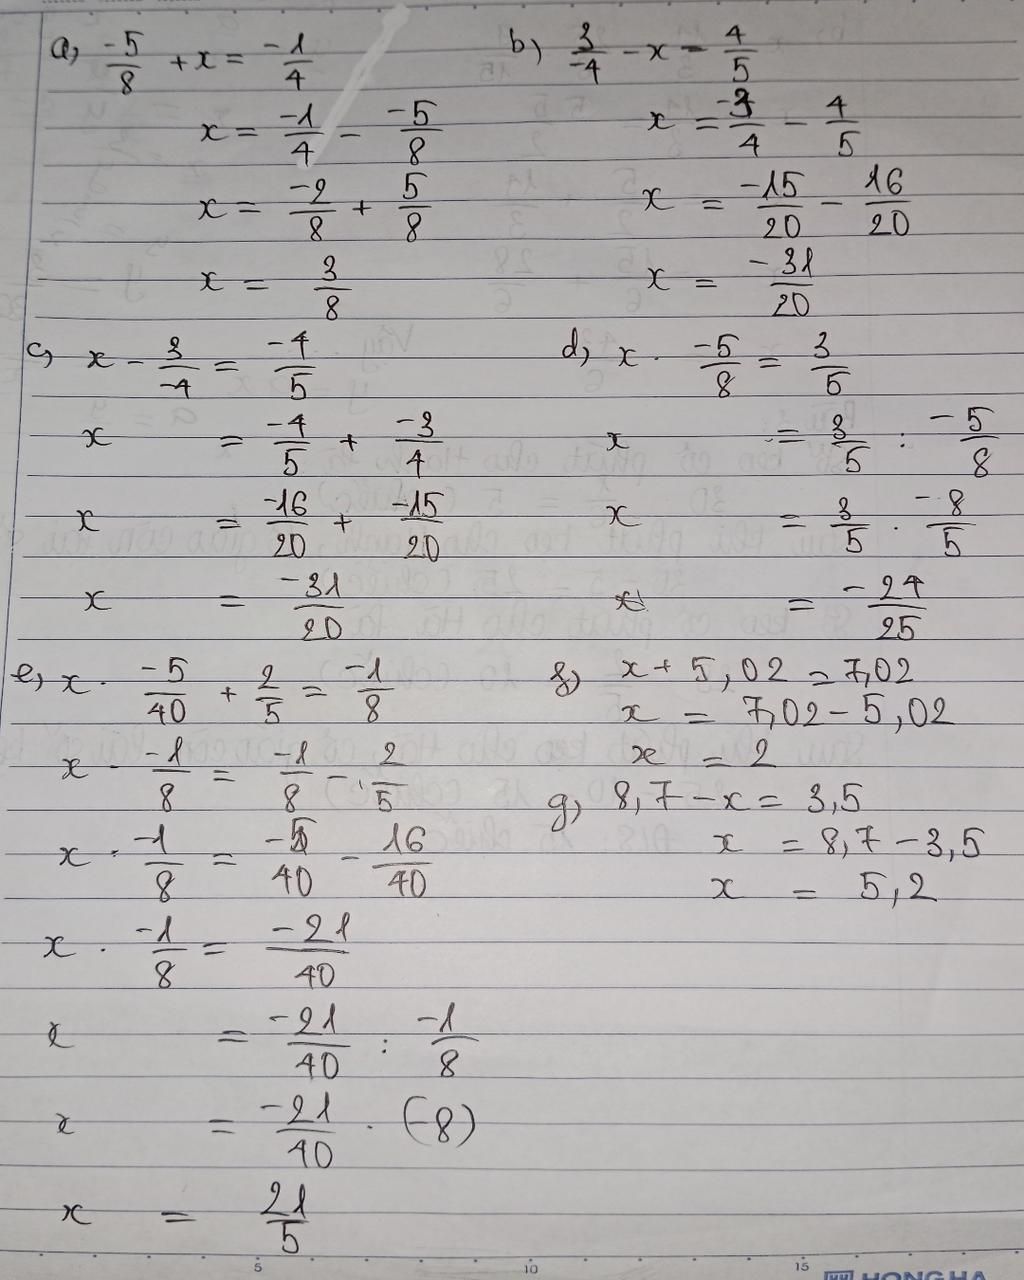 a, -5/8 + x = -1/4
x = -1/4 - -5/8
x = -2/8 + 5/8
x = 3/8
b) 3/-4 - x = 4/5
x = -3/4 - 4/5
x = -15/20 - 16/20
x = -31/20
c, x - 3/-4 = -4/5
x = -4/5 + -3/4
x = -16/20 + -15/20
x = -31/20
d, x . -5/8 = 3/5
x = 3/5 : -5/8
x = 3/5 . -8/5
x = -24/25
e, x . -5/40 + 2/5 = -1/8
x . -1/8 = -1/8 - 2/5
x . -1/8 = -5/40 - 16/40
x . -1/8 = -21/40
x = -21/40 : -1/8
x = -21/40 . (-8)
x = 21/5
f, x + 5,02 = 7,02
x = 7,02 - 5,02
x = 2
g, 8,7 - x = 3,5
x = 8,7 - 3,5
x = 5,2
5 10 15
HONG HA